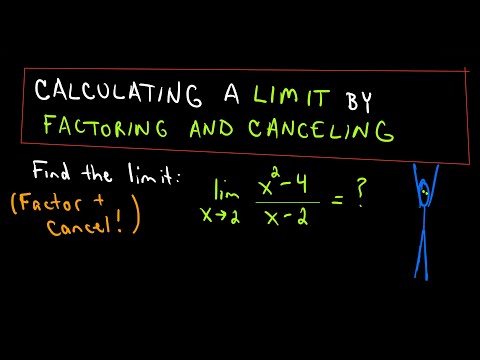 CALCULATING A LIMIT BY
FACTORING AND CANCELING
Find the limit:
(Factor +
Cancel!)
lim x→2 x²-4 / x-2 = ?